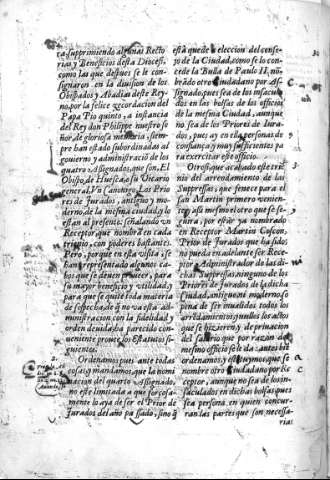 ra, supprimiendo algunas Recto
rias y Beneficios desta Diocesi,
como las que despues se le con-
signaron en la diuision de los
Obispados y Abadias deste Rey-
no, por la felice recordacion del
Papa Pio quinto, a instancia
del Rey don Philippe nuestro se
ñor de gloriosa memoria, siem-
pre han estado subordinadas al
gouierno y administració de los
quatro Assignados, que son, El
Obispo de Huesca, su Vicario
general, Vn Canonigo, Los Prio
res de Jurados, antiguo y mo-
derno, de la mesma ciudad, q̃ lo
estan al presente: señalando vn
Receptor, que nombrã en cada
trienio, con poderes bastantes.
Pero, porque en esta visita, se
han representado algunos ca-
bos que se deuen proueer, para
su mayor beneficio y vtilidad, y
para que se quite toda materia
de sospecha, de q̃ no esta su ad-
ministracion con la fidelidad y
orden deuida, ha parecido con-
ueniente proueer los Estatutos si-
guientes.
Ordenamos pues ante todas
cosas, y mandamos, que la nomi
nacion del quarto Assignado,
no este limitada a que forçosa-
mente lo aya de ser el Prior de
Jurados del año passado, sino q̃
este quede a eleccion del conse-
jo de la Ciudad, como se lo con-
cede la Bulla de Paulo II, nõ-
brãdo otro Ciudadano por As-
signado, pues sea de los insacula
dos en las bolsas de los officios
de la mesma Ciudad, aunque
no sea de los Priores de Jura-
dos, pues ay en ella personas de
confiança y muy sufficientes pa
ra exercitar este officio.
Otrosi, que acabado este trie-
nio del arrendamiento de las
Suppressas, que fenece para el
san Martin primero venien-
te, assi mesmo el otro que se si-
gue, por estar ya nombrado
en Receptor Martin Coscon,
Prior de Jurados que ha sido,
no pueda en adelante ser Rece-
ptor y Administrador de las di-
chas Suppressas ninguno de los
Priores de Jurados de la dicha
ciudad, antiguo ni moderno, so
pena de ser inualidos todos los
arrendamientos y nullos los actos
que se hizieren, y de priuacion
del salario que por razon del
mesmo officio se le da: antes biẽ
ordenamos y estatuymos, que se
nombre otro Ciudadano por Re
ceptor, aunque no sea de los in-
saculados en dichas bolsas, pues
sea persona en quien concur-
ran las partes que son necessa-
rias